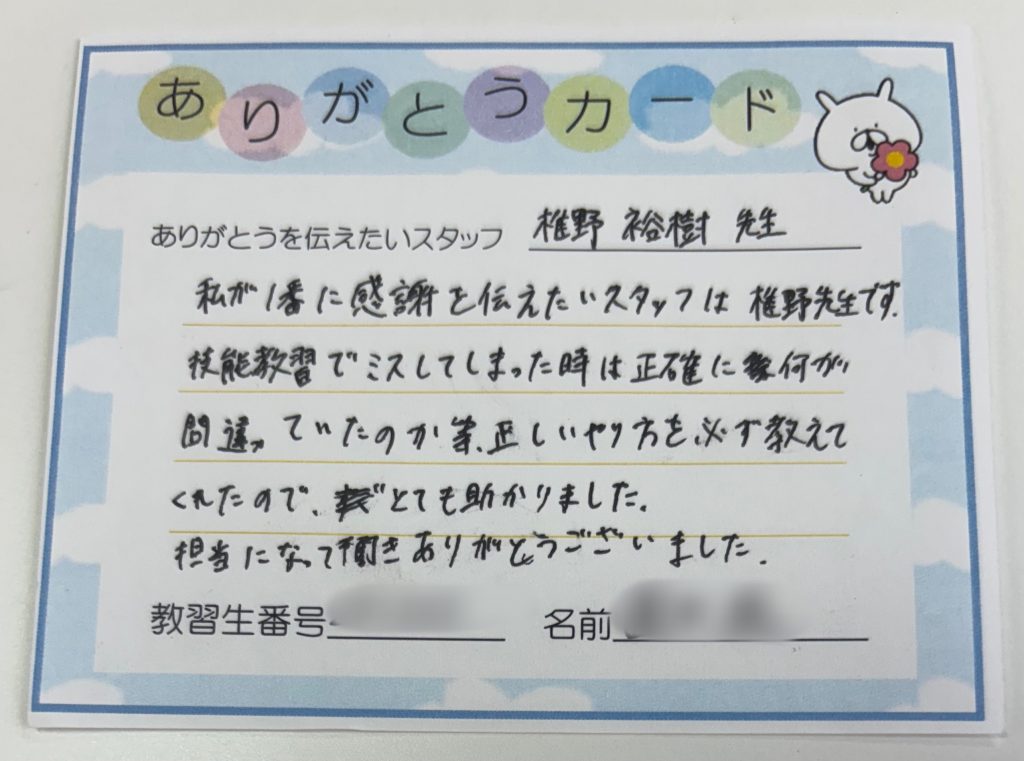 ありがとうカード
ありがとうを伝えたいスタッフ 椎野 裕樹 先生
私が1番に感謝を伝えたいスタッフは 椎野先生です.
技能教習でミスしてしまった時は正確に何が
間違っていたのか等、正しいやり方を必ず教えて
くれたので、とても助かりました.
担当になって頂きありがとうございました.
教習生番号
名前